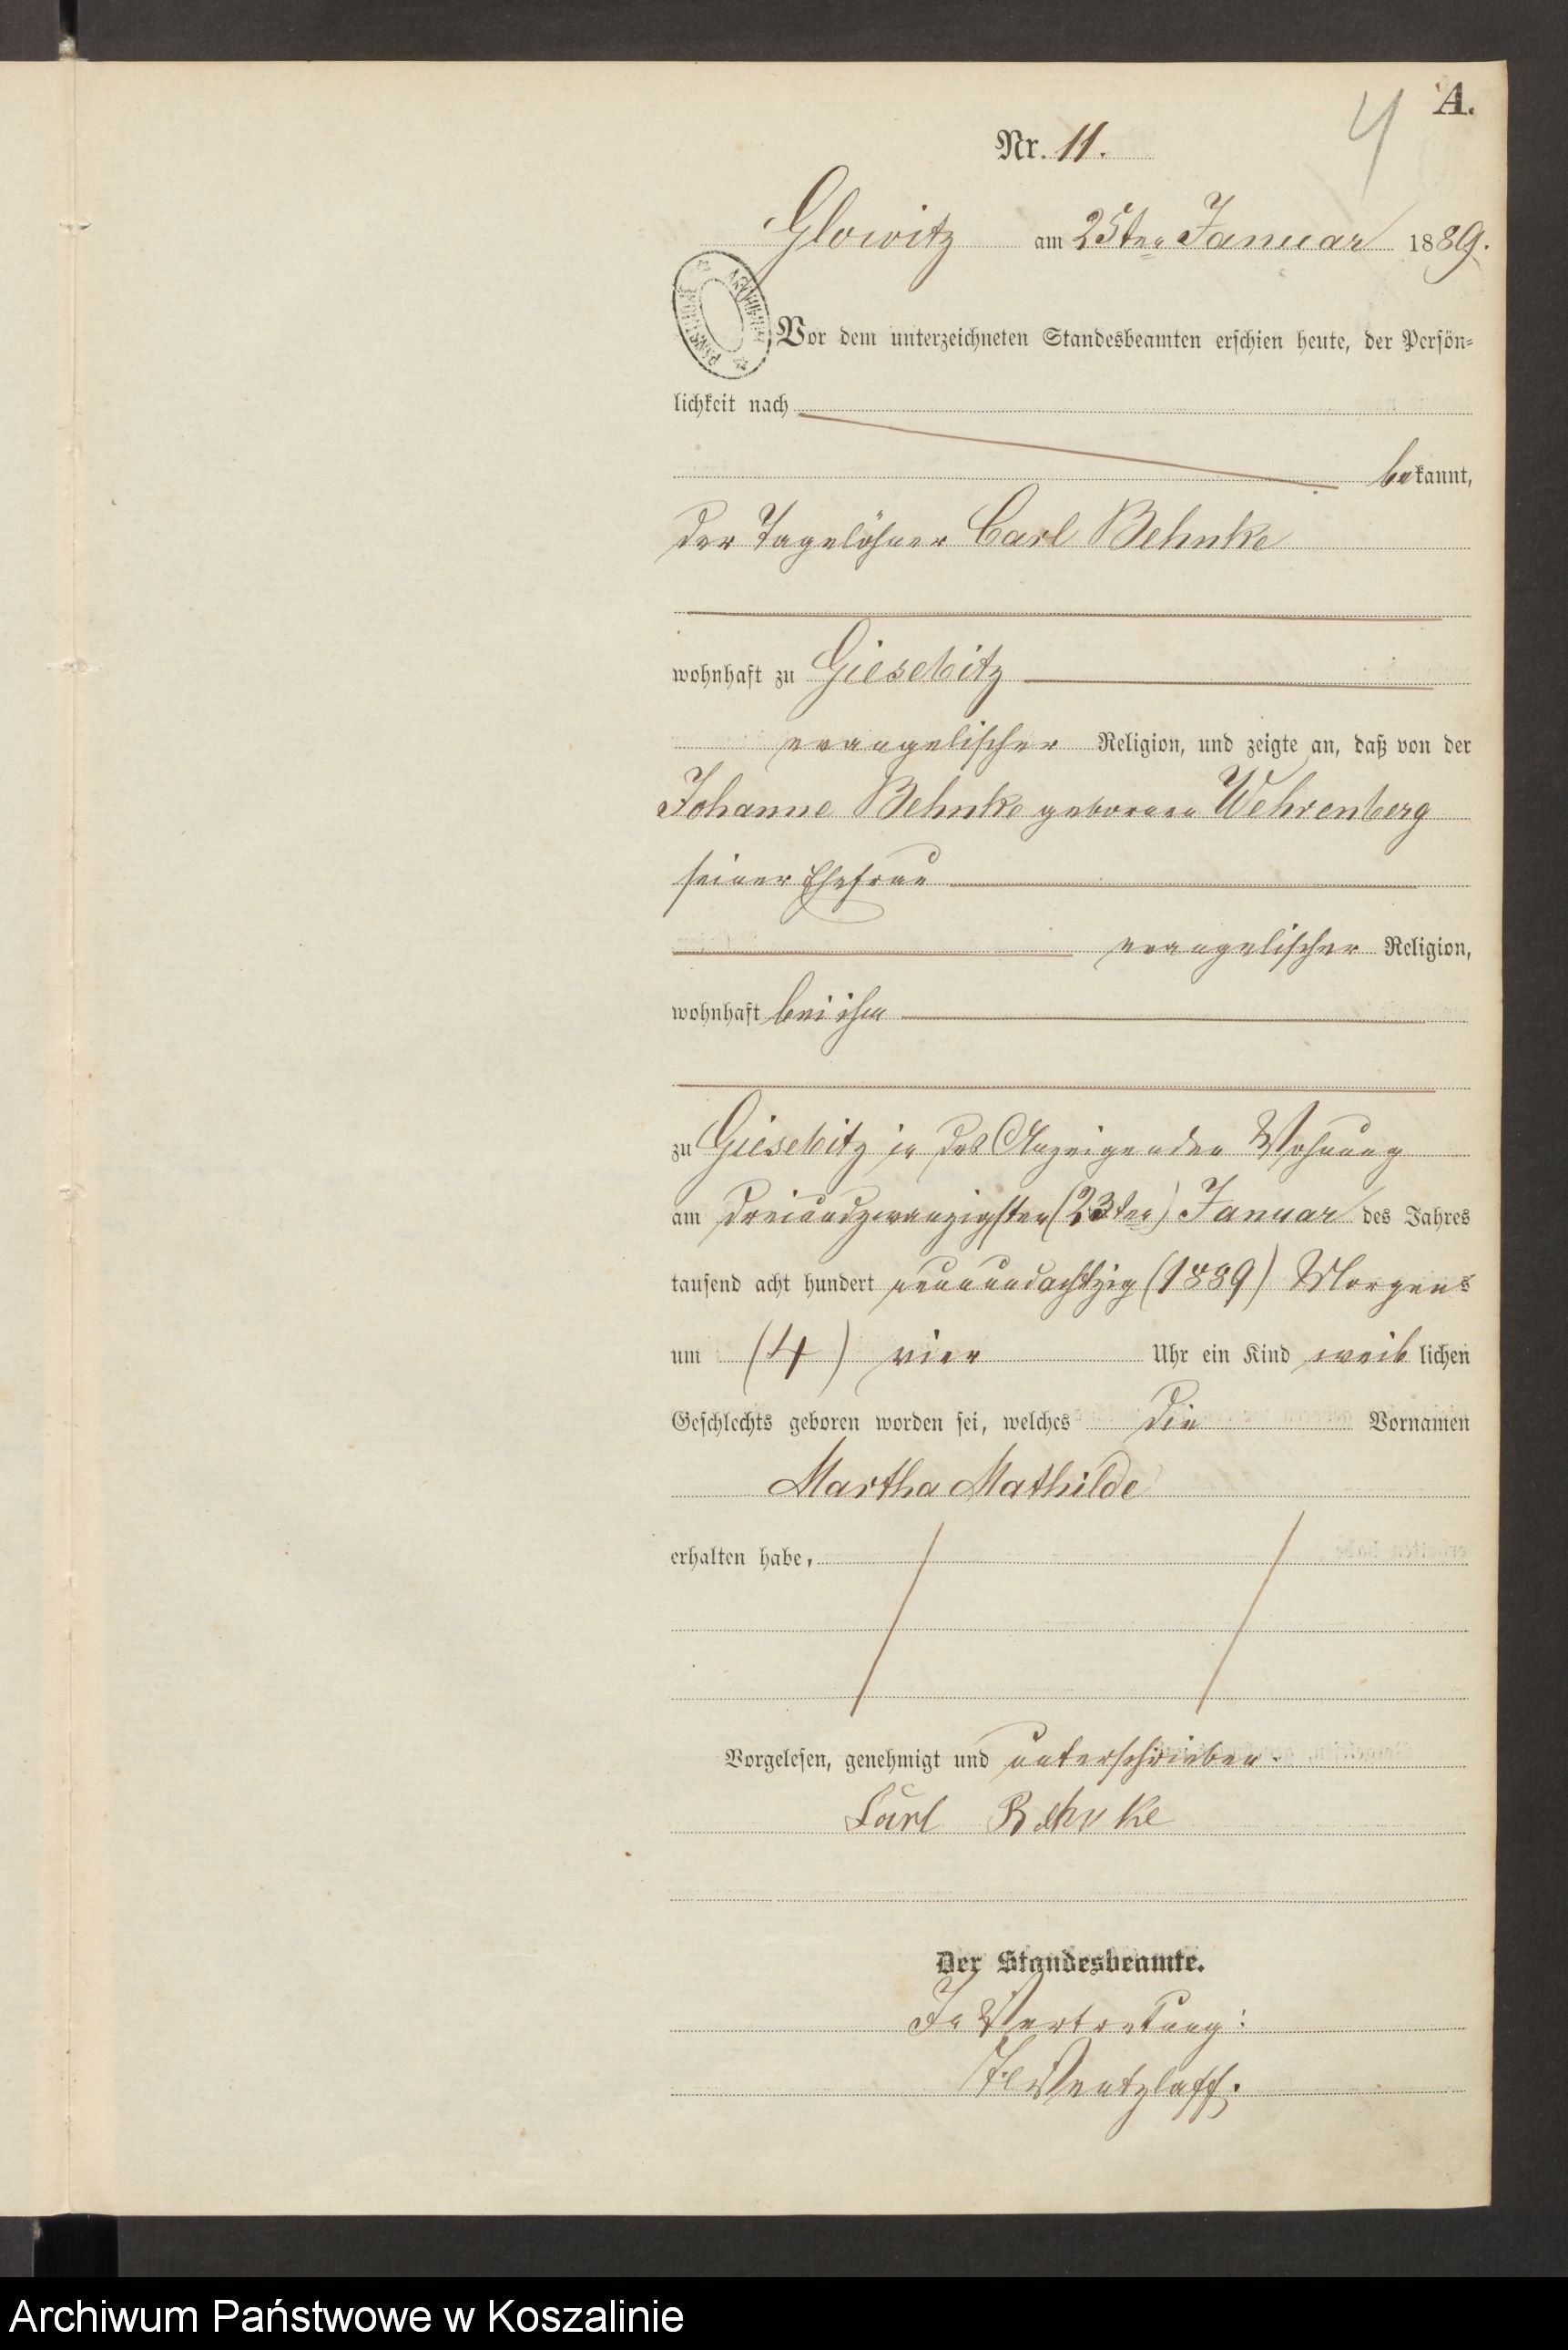 A.
4
Nr. 11.
Glowitz am 25ten Januar 1889.
Vor dem unterzeichneten Standesbeamten erschien heute, der Persön-
lichkeit nach
bekannt,
der Tagelöhner Carl Behnke
wohnhaft zu Giesebitz
evangelischer Religion, und zeigte an, daß von der
Johanne Behnke geborenen Wehrenberg
seiner Ehefrau
evangelischer Religion,
wohnhaft bei ihm
zu Giesebitz in des Anzeigenden Wohnung
am dreiundzwanzigsten (23ten) Januar des Jahres
tausend acht hundert neunundachtzig (1889) Morgens
um (4) vier Uhr ein Kind weiblichen
Geschlechts geboren worden sei, welches die Vornamen
Martha Mathilde
erhalten habe,
Vorgelesen, genehmigt und unterschrieben.
Carl Behnke
Der Standesbeamte.
In Vertretung:
Wentzlaff.
Archiwum Państwowe w Koszalinie